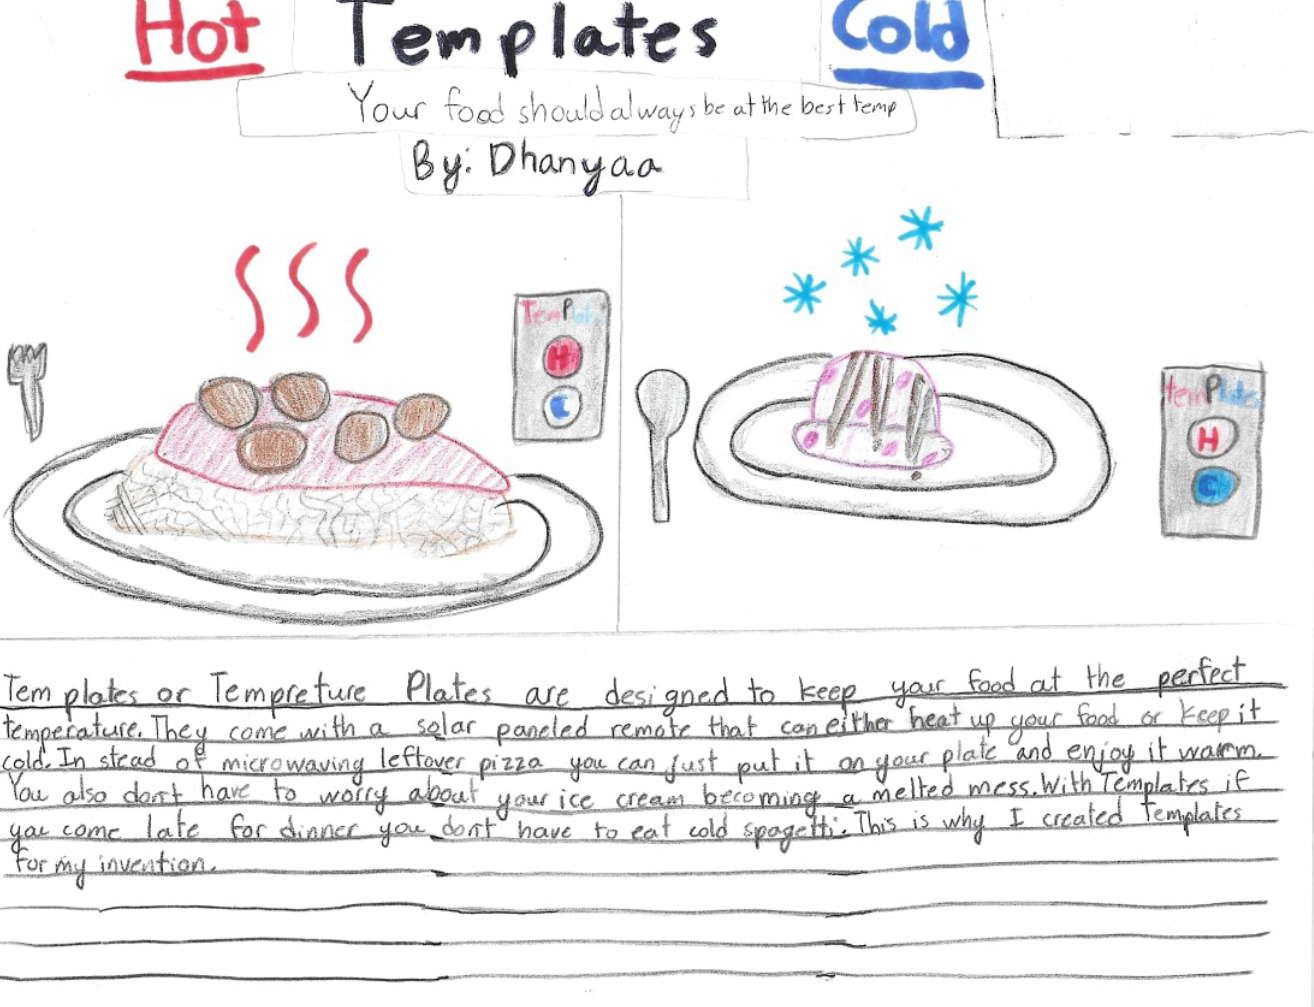 Hot Templates Cold
Your food should always be at the best temp
By: Dhanyaa
TemPlat
H
C
temPlates
H
C
Tem plates or Tempreture Plates are designed to keep your food at the perfect
temperature. They come with a solar paneled remote that can either heat up your food or keep it
cold. In stead of microwaving leftover pizza you can just put it on your plate and enjoy it warm.
You also don't have to worry about your ice cream becoming a melted mess. With Templates if
you come late for dinner you don't have to eat cold spagetti. This is why I created Templates
for my invention.